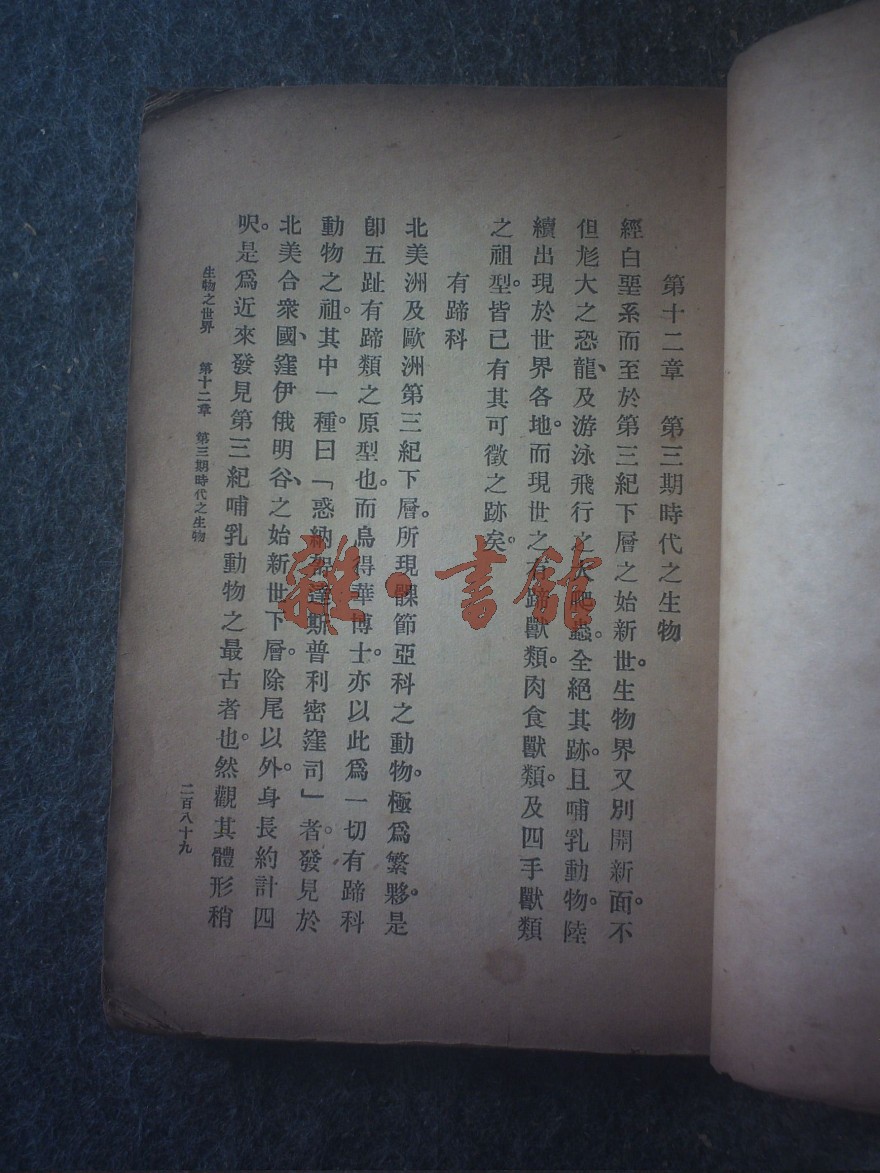 第十二章　第三期時代之生物
經白堊系而至於第三紀下層之始新世。生物界又別開新面。不
但尨大之恐龍、及游泳飛行之大爬蟲。全絕其跡。且哺乳動物。陸
續出現於世界各地。而現世之有蹄獸類。肉食獸類。及四手獸類
之祖型。皆已有其可徵之跡矣。
有蹄科
北美洲及歐洲第三紀下層。所現髁節亞科之動物。極爲繁夥。是
卽五趾有蹄類之原型也。而烏得華博士。亦以此爲一切有蹄科
動物之祖。其中一種。曰「惑納達斯普利密窪司」者。發見於
北美合衆國、窪伊俄明谷、之始新世下層。除尾以外。身長約計四
呎。是爲近來發見第三紀哺乳動物之最古者也。然觀其體形稍
生物之世界　第十二章　第三期時代之生物　二百八十九
雜·書館